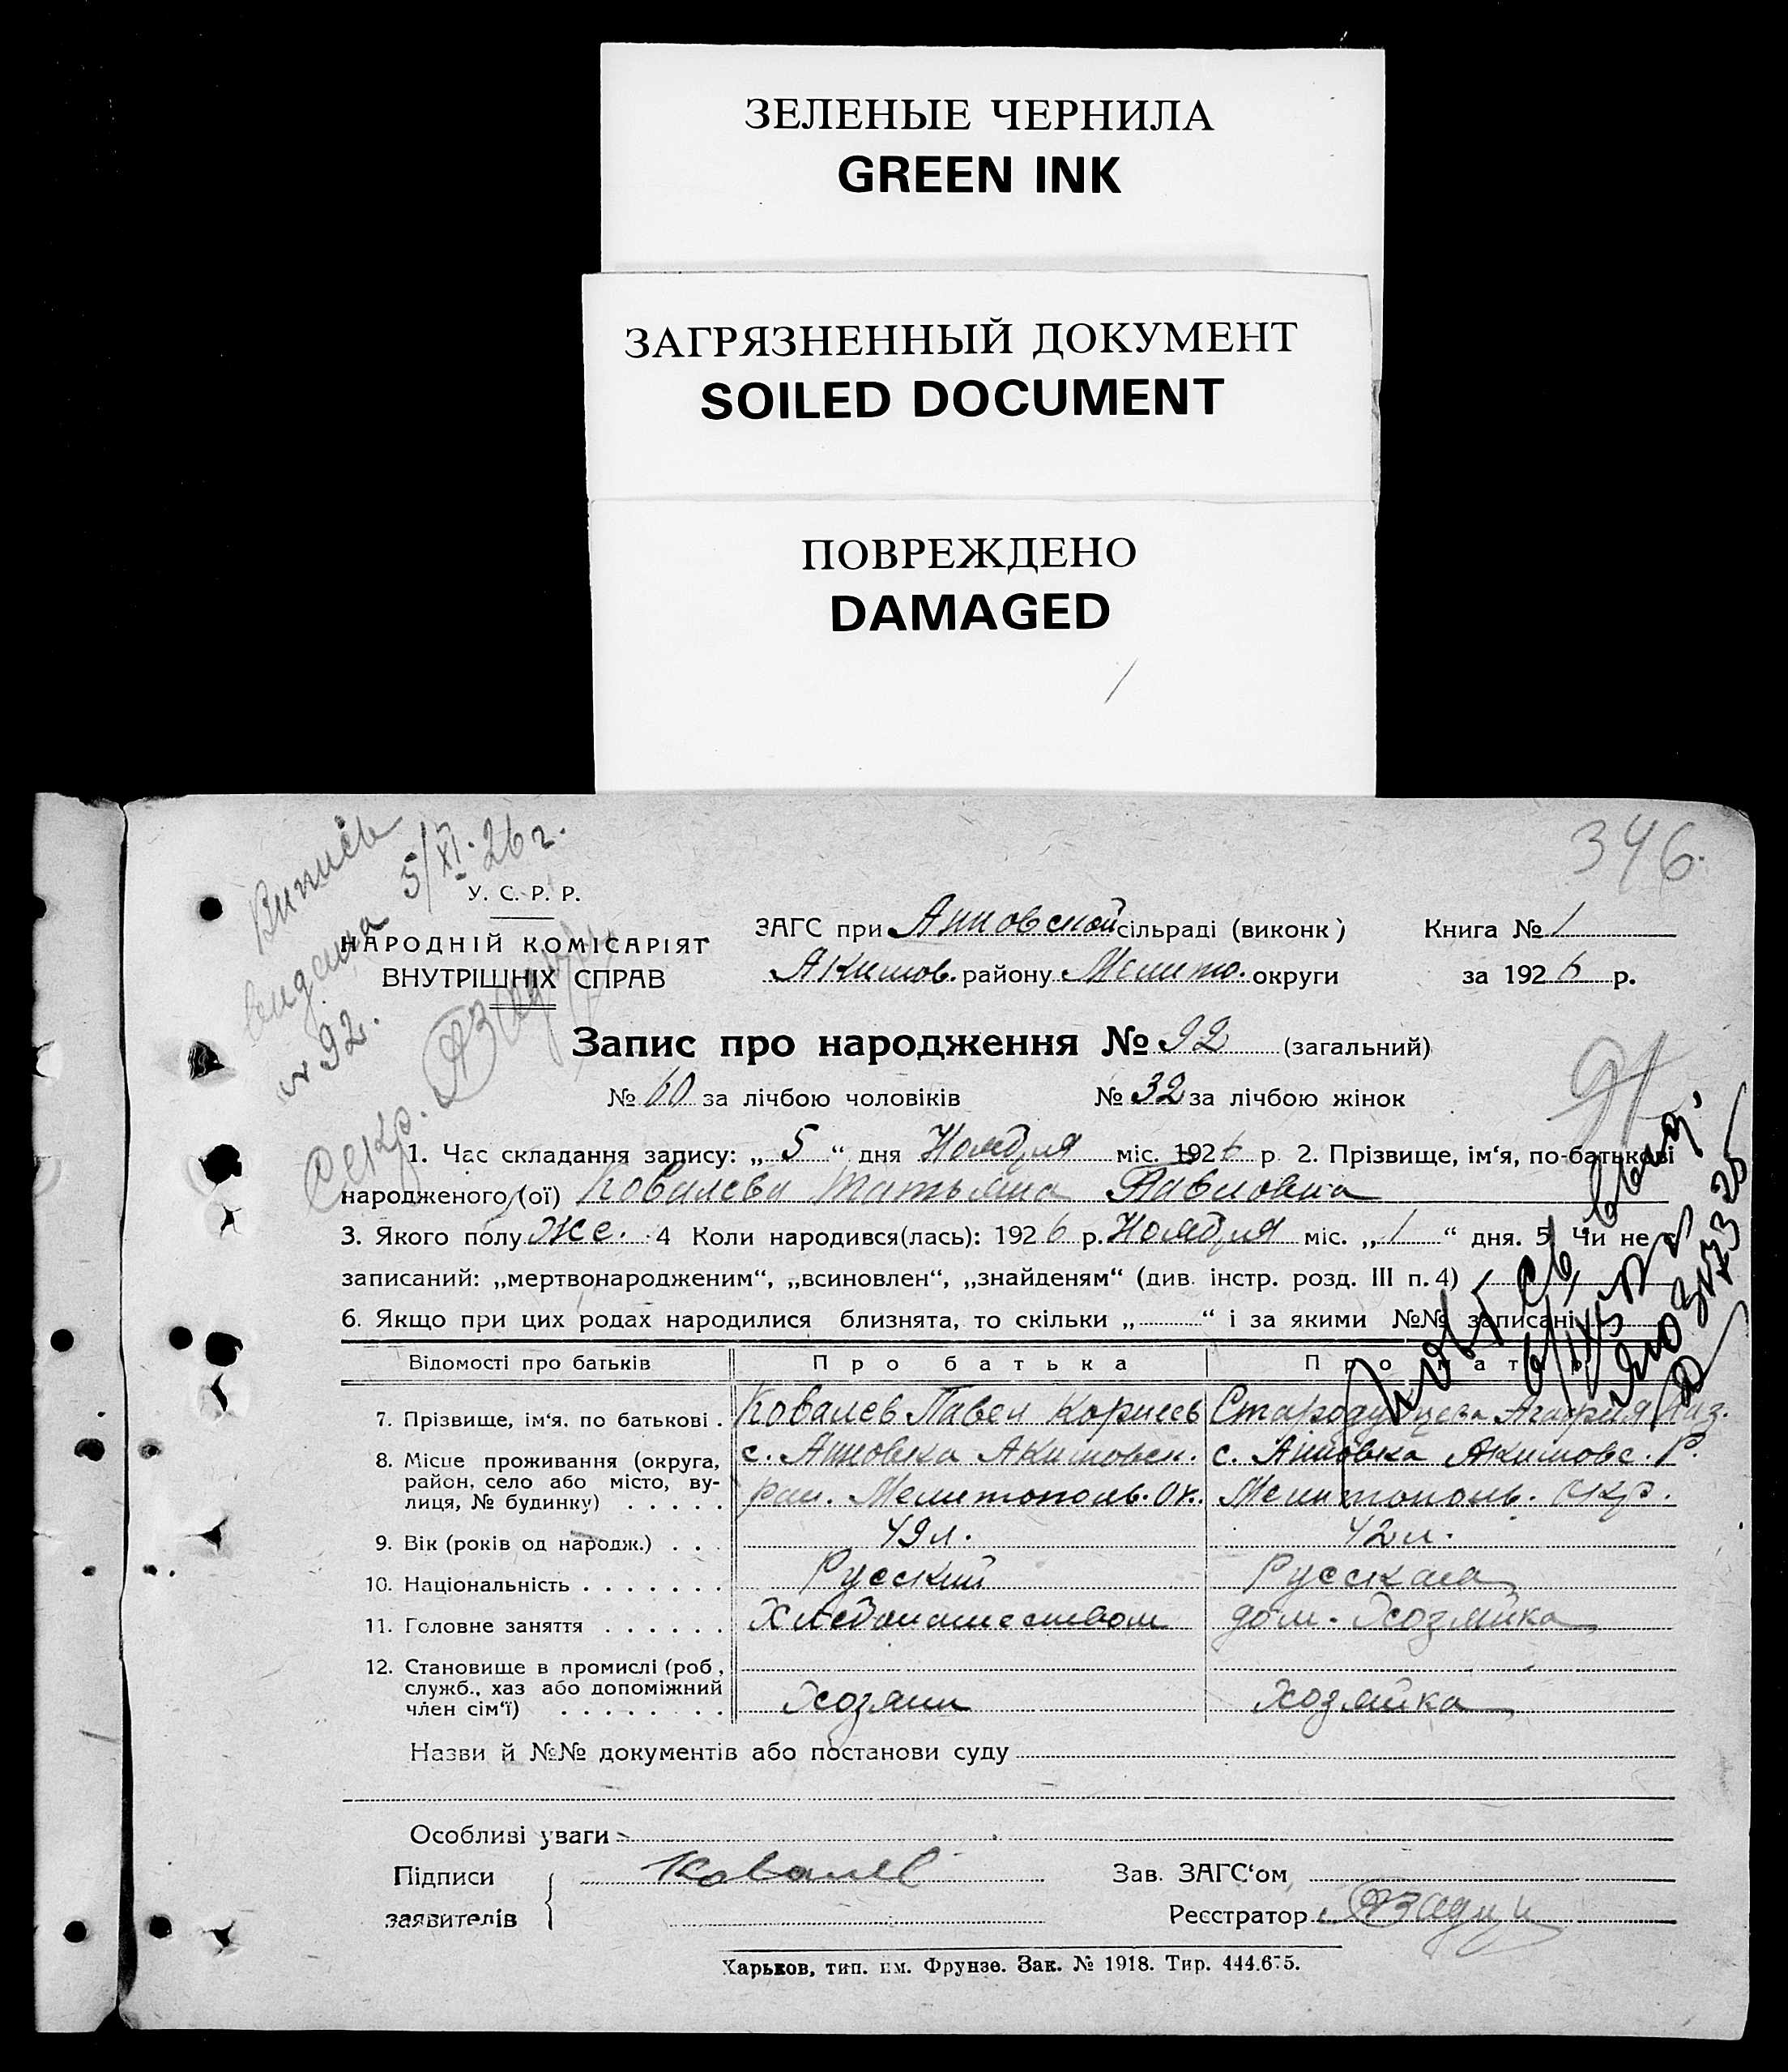 ЗЕЛЕНЫЕ ЧЕРНИЛА
GREEN INK
ЗАГРЯЗНЕННЫЙ ДОКУМЕНТ
SOILED DOCUMENT
ПОВРЕЖДЕНО
DAMAGED
346.
Випись
видана 5/XI-26 г.
№ 92.
Секр.
У. С. Р. Р.
НАРОДНІЙ КОМІСАРІЯТ
ВНУТРІШНІХ СПРАВ
ЗАГС при Анновской сільраді (виконк)
Акимов. району Мелито. округи
Книга № 1
за 1926 р.
Запис про народження № 92 (загальний)
№ 60 за лічбою чоловіків № 32 за лічбою жінок
91
1. Час складання запису: „ 5 “ дня Ноября міс. 1926 р 2. Прізвище, ім'я, по-батькові
народженого (ої) Ковалева Татьяна Павловна
3. Якого полу Же. 4 Коли народився(лась): 1926 р. Ноября міс. „ 1 “ дня. 5 Чи не є
записаний: „мертвонародженим“, „всиновлен“, „знайденям“ (див. інстр. розд. III п. 4)
6. Якщо при цих родах народилися близнята, то скільки „ “ і за якими №№ записані
Відомості про батьків Про батька Про матір
7. Прізвище, ім'я, по батькові . Ковалев Павел Корнеев Стародубцева Агафия Наз.
8. Місце проживання (округа, район, село або місто, вулиця, № будинку) . . . . . с. Анновка Акимовск. с. Анновка Акимовс. Р.
раи. Мелитополь. Ок. Мелитополь. Окр.
9. Вік (років од народж.) . . . 49 л. 42 л.
10. Національність . . . . . . . Русский Русская
11. Головне заняття . . . . . . Хлебопашеством дом. Хозяйка
12. Становище в промислі (роб, служб., хаз або допоміжний член сім'ї) . . . . . . . . Хозяин Хозяйка
Назви й №№ документів або постанови суду
Особливі уваги
Підписи
заявителів
Ковалев
Зав. ЗАГС'ом
Реєстратор
Харьков, тип. им. Фрунзе. Зак. № 1918. Тир. 444.675.